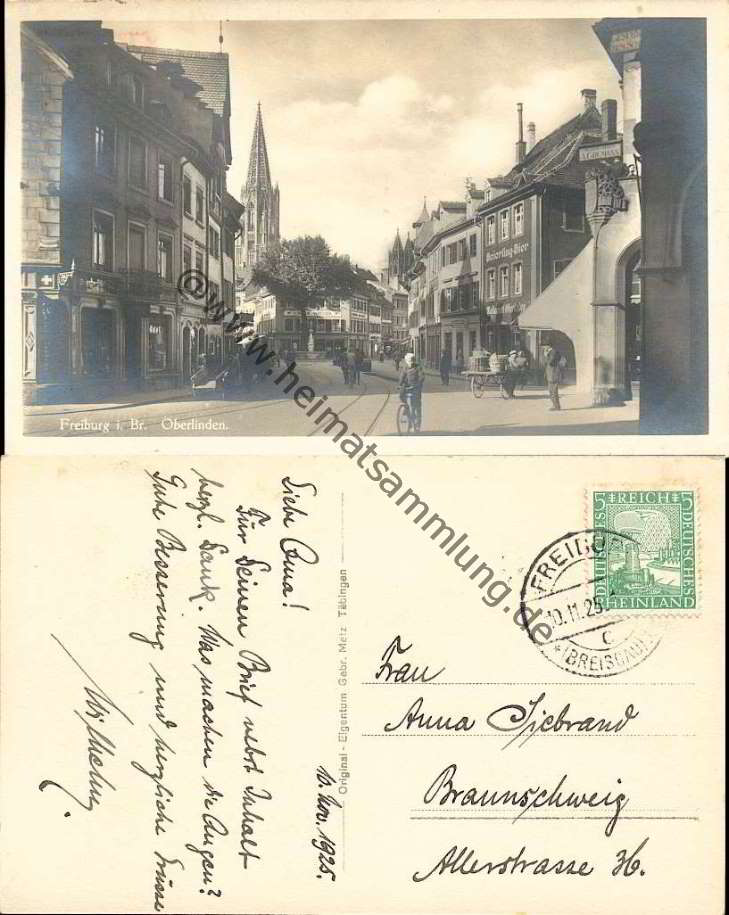 Feierling-Bier
Freiburg i. Br. Oberlinden.
@www.heimatsammlung.de
Liebe Oma!
Für Deinen Brief nebst Inhalt
herzl. Dank. Was machen die Augen?
Gute Besserung und herzliche Grüsse
Wilhelm.
10. Nov. 1925.
Original - Eigentum Gebr. Metz Tübingen
5 REICH 5
DEUTSCHES
DEUTSCHES
RHEINLAND
FREIBURG
10.11.25.
c
*(BREISGAU)
Frau
Anna Siebrand
Braunschweig
Allerstrasse 36.